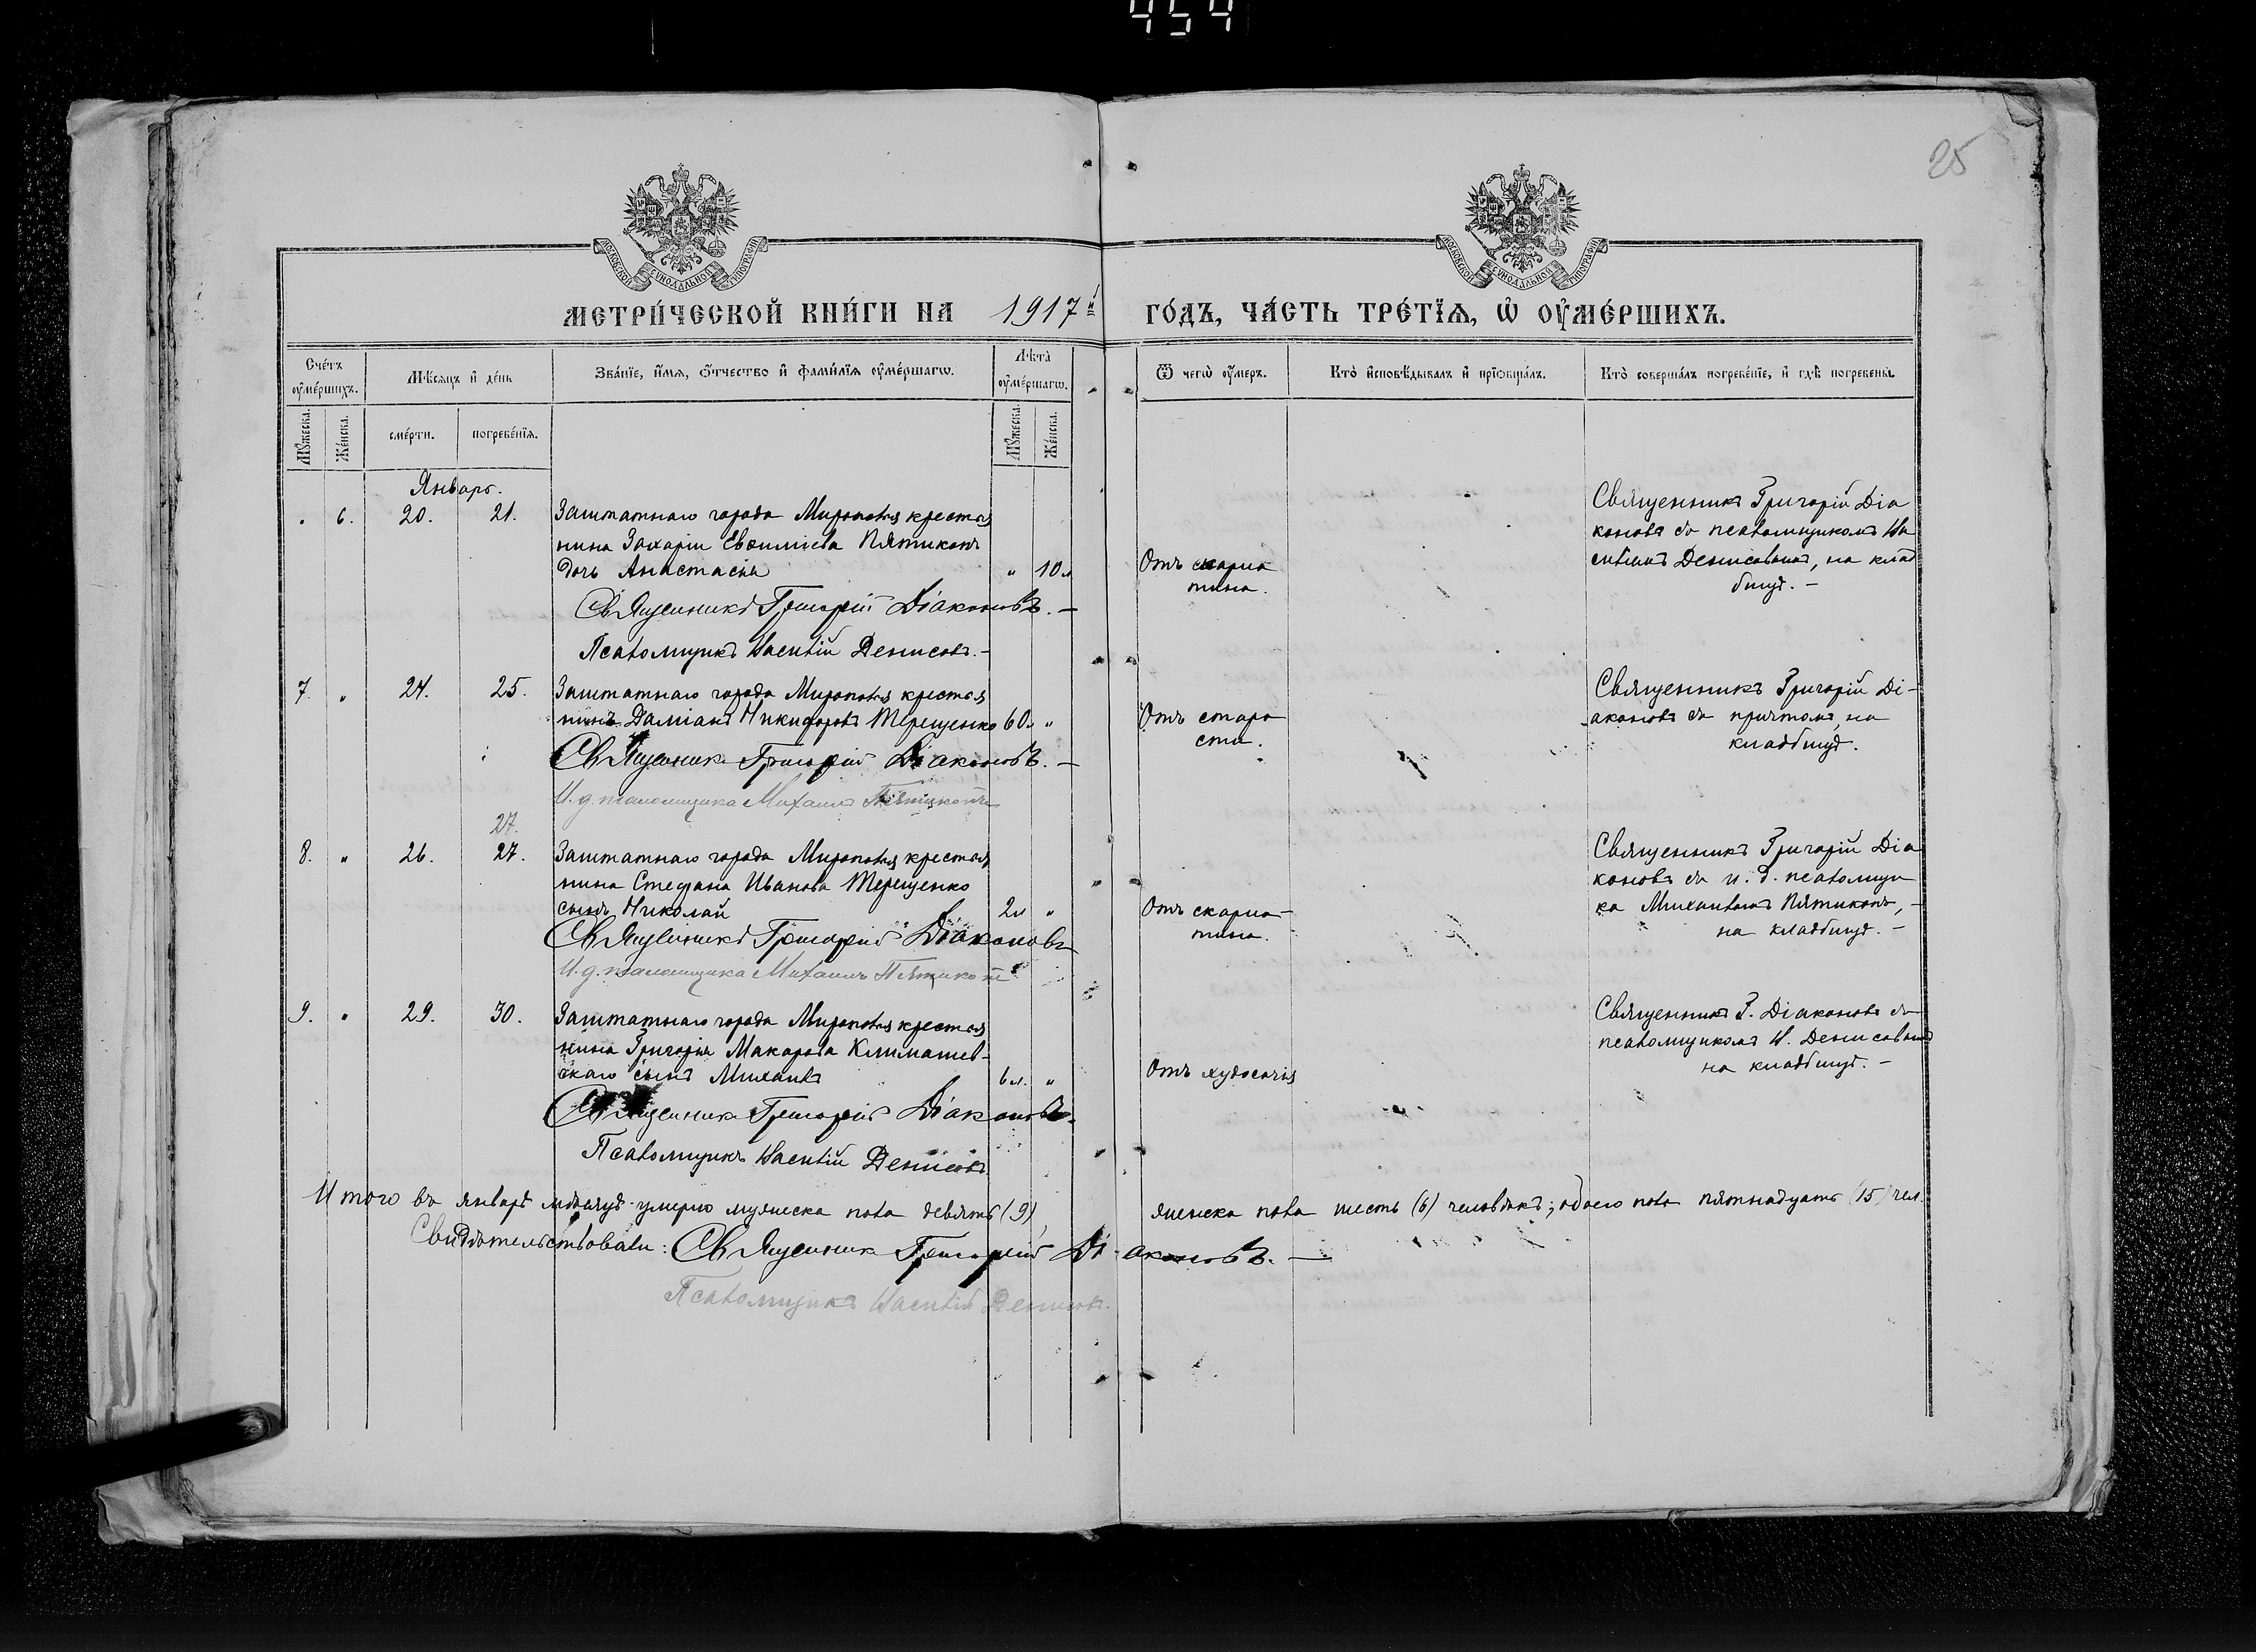 454
25
МОСКОВСКОЙ СѴНОДАЛЬНОЙ ТИПОГРАФІИ
МОСКОВСКОЙ СѴНОДАЛЬНОЙ ТИПОГРАФІИ
МЕТРИ́ЧЕСКОЙ КНИ́ГИ НА 1917й ГО́ДЪ, ЧА́СТЬ ТРЕ́ТЇѦ, Ѡ҆ ОУ҆МЕ́РШИХЪ.
Сче́тъ оу҆ме́ршихъ.
Мѣ́сяцъ и҆ де́нь
Зва́нїе, и҆́мѧ, ѻ҆́тчество и҆ фамѝлїѧ оу҆ме́ршагѡ.
Лѣта̀ оу҆ме́ршагѡ.
Ѿ чегѡ̀ оу҆́меръ.
Кто̀ и҆сповѣ́дывалъ и҆ прїѡбща́лъ.
Кто̀ соверша́лъ погребе́нїе, и҆ гдѣ̀ погребены̀.
Мꙋ́жеска. Же́нска. сме́рти. погребе́нїѧ. Мꙋ́жеска. Же́нска.
Январь.
. 6. 20. 21. Заштатнаго города Мирополья крестья
нина Захарiи Евѳимiева Пятикопъ
дочь Анастасiя " 10 л
Священникъ Григорій Дiаконовъ. —
Псаломщикъ Василій Денисовъ. –
Отъ скарла
тина.
Священникъ Григорій Дiа
коновъ съ псаломщикомъ Ва
силіемъ Денисовымъ, на клад
бищѣ. –
7. " 24. 25. Заштатнаго города Мирополья крестья
нинъ Даміанъ Никифоровъ Терещенко 60 л "
Священникъ Григорій Дiаконовъ. —
И. д. псаломщика Михаилъ Пятикопъ
Отъ старо
сти.
Священникъ Григорій Дi-
аконовъ съ причтомъ, на
кладбищѣ.
27.
8. " 26. 27. Заштатнаго города Мирополья крестья
нина Стефана Иванова Терещенко
сынъ Николай 2 л "
Священникъ Григорій Дiаконовъ
И. д. псаломщика Михаилъ Пятикопъ
Отъ скарла-
тина.
Священникъ Григорій Дiа
коновъ съ и. д. псаломщи
ка Михаиломъ Пятикопъ, –
на кладбищѣ. –
9. " 29. 30. Заштатнаго города Мирополья крестья
нина Григорія Макарова Климашев-
скаго сынъ Михаилъ 6 л. "
Священникъ Григорій Дiаконовъ.
Псаломщикъ Василій Денисовъ
Отъ худосочія
Священникъ Г. Дiаконовъ съ
псаломщикомъ В. Денисовымъ
на кладбищѣ. –
Итого въ январѣ мѣсяцѣ умерло мужеска пола девять (9), женска пола шесть (6) человѣкъ; обоего пола пятнадцать (15) чел.
Свидѣтельствовали: Священникъ Григорій Дi-аконовъ. —
Псаломщикъ Василій Денисовъ.